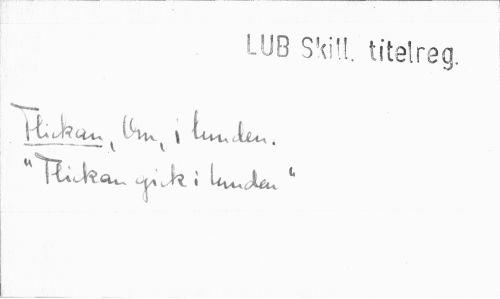 LUB Skill. titelreg.
Flickan, Om, i lunden.
"Flickan gick i lunden"